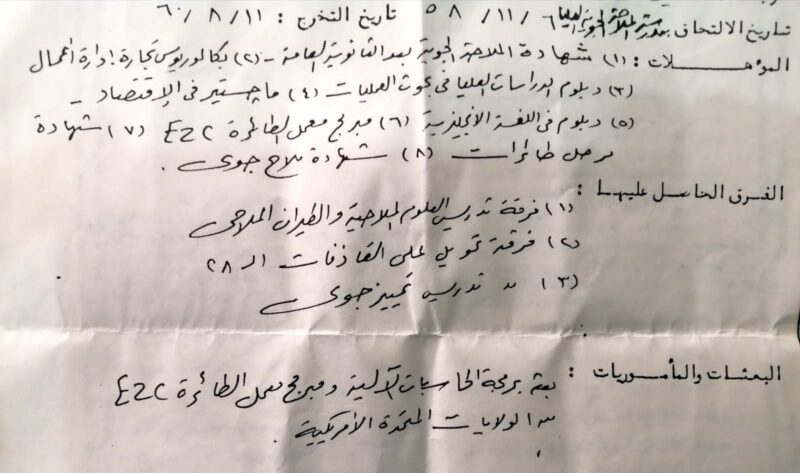 تاريخ الالتحاق بمدرسة الملاحة الجوية العليا ٦ /١١/ ٥٨ تاريخ التخرج : ١١ / ٨ / ٦٠
المؤهلات : (١) شهادة الملاحة الجوية بعد الثانوية العامة - (٢) بكالوريوس تجارة إدارة أعمال
(٣) دبلوم الدراسات العليا فى بحوث العمليات (٤) ماجستير فى الإقتصاد -
(٥) دبلوم فى اللغة الانجليزية (٦) مبرمج معمل الطائرة E2C (٧) شهادة
مرحل طائرات (٨) شهادة ملاح جوى .
الفرق الحاصل عليها :
(١) فرقة تدريس العلوم الملاحية والطيران الملاحى
(٢) فرقة تحويل على القاذفات الـ ٢٨
(٣) " تدريب تمييز جوى
البعثات والمأموريات : بعثة برمجة الحاسبات الآلية ومبرمج معمل الطائرة E2C
الولايات المتحدة الأمريكية .